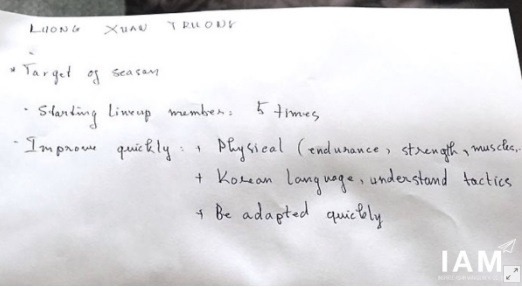 LUONG XUAN TRUONG
* Target of season
- Starting lineup member: 5 times
- Improve quickly: + Physical (endurance, strength, muscles,..
+ Korean language, understand tactics
+ Be adapted quickly
IAM